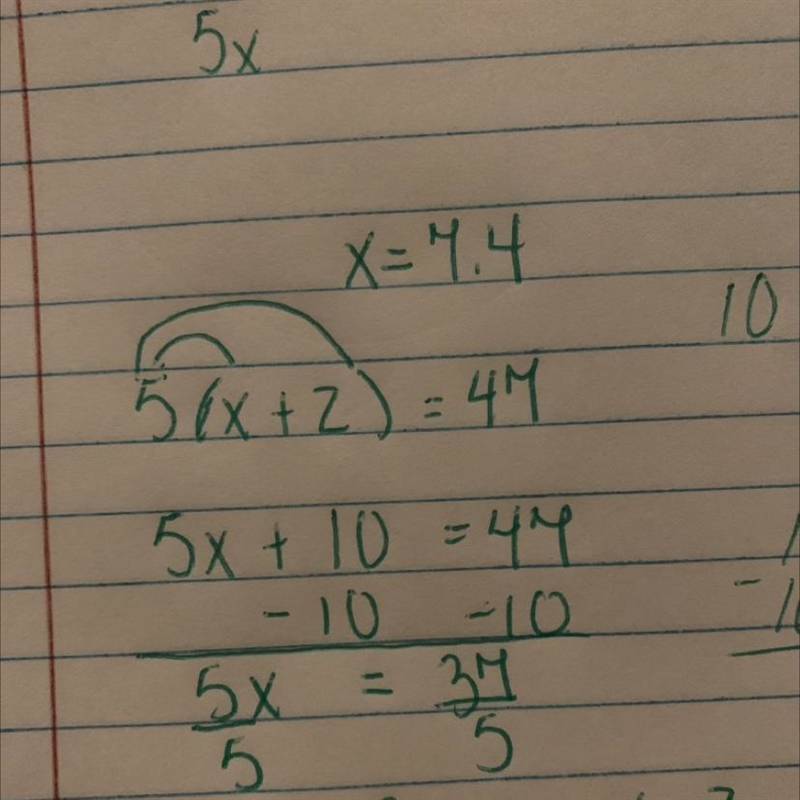 5x
x = 7.4
10
5(x + 2) = 47
5x + 10 = 47
- 10 - 10
5x = 37
5 5